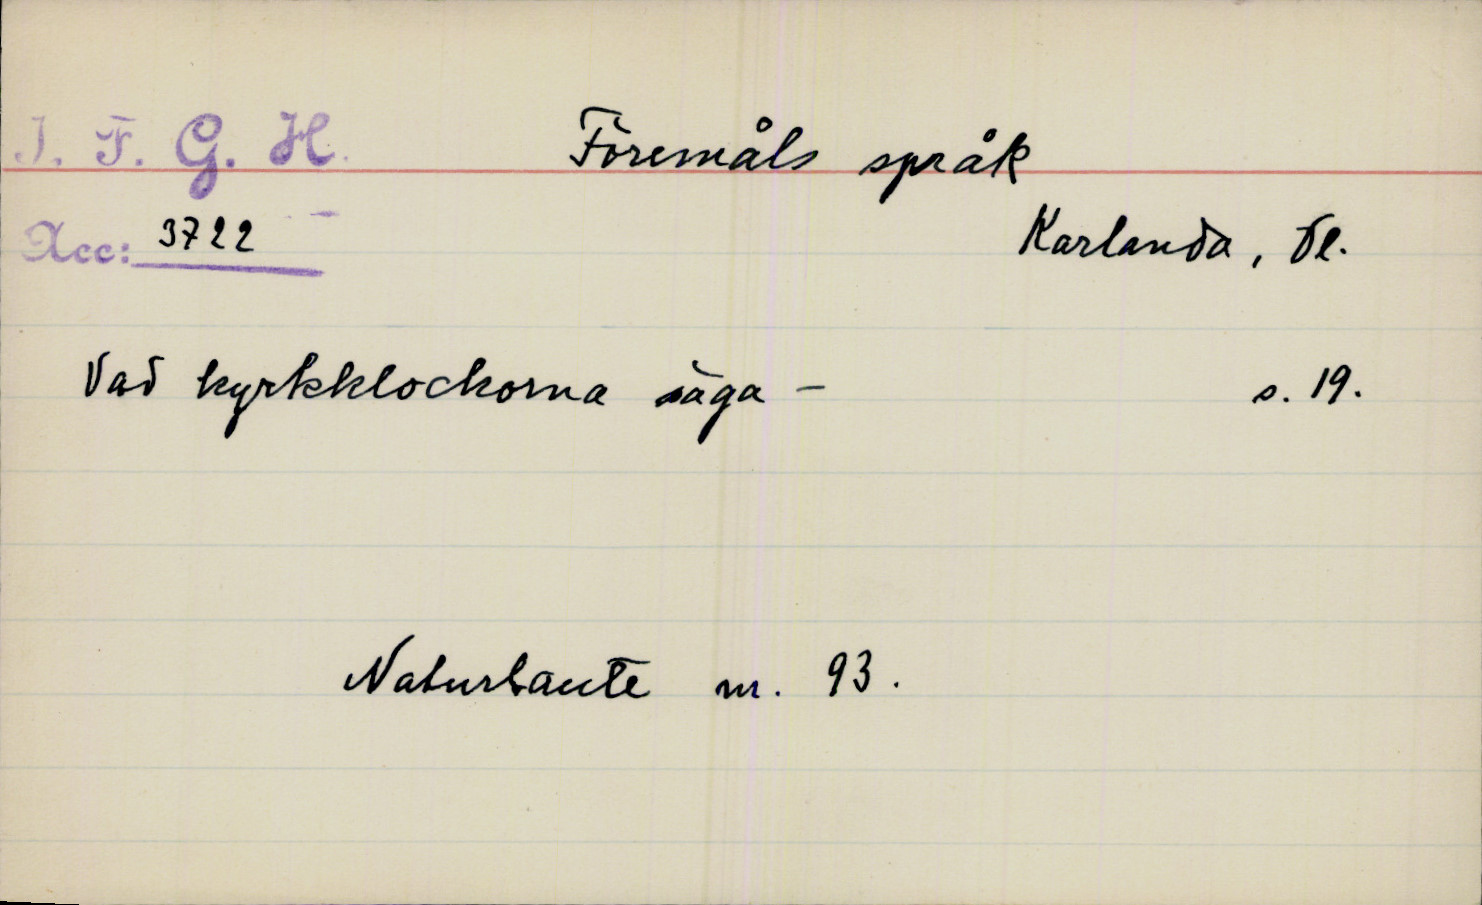 I. F. G. H. Föremåls språk
Acc: 3722 Karlanda, Vl.
Vad kyrkklockorna säga – s. 19.
Naturlaute nr. 93.